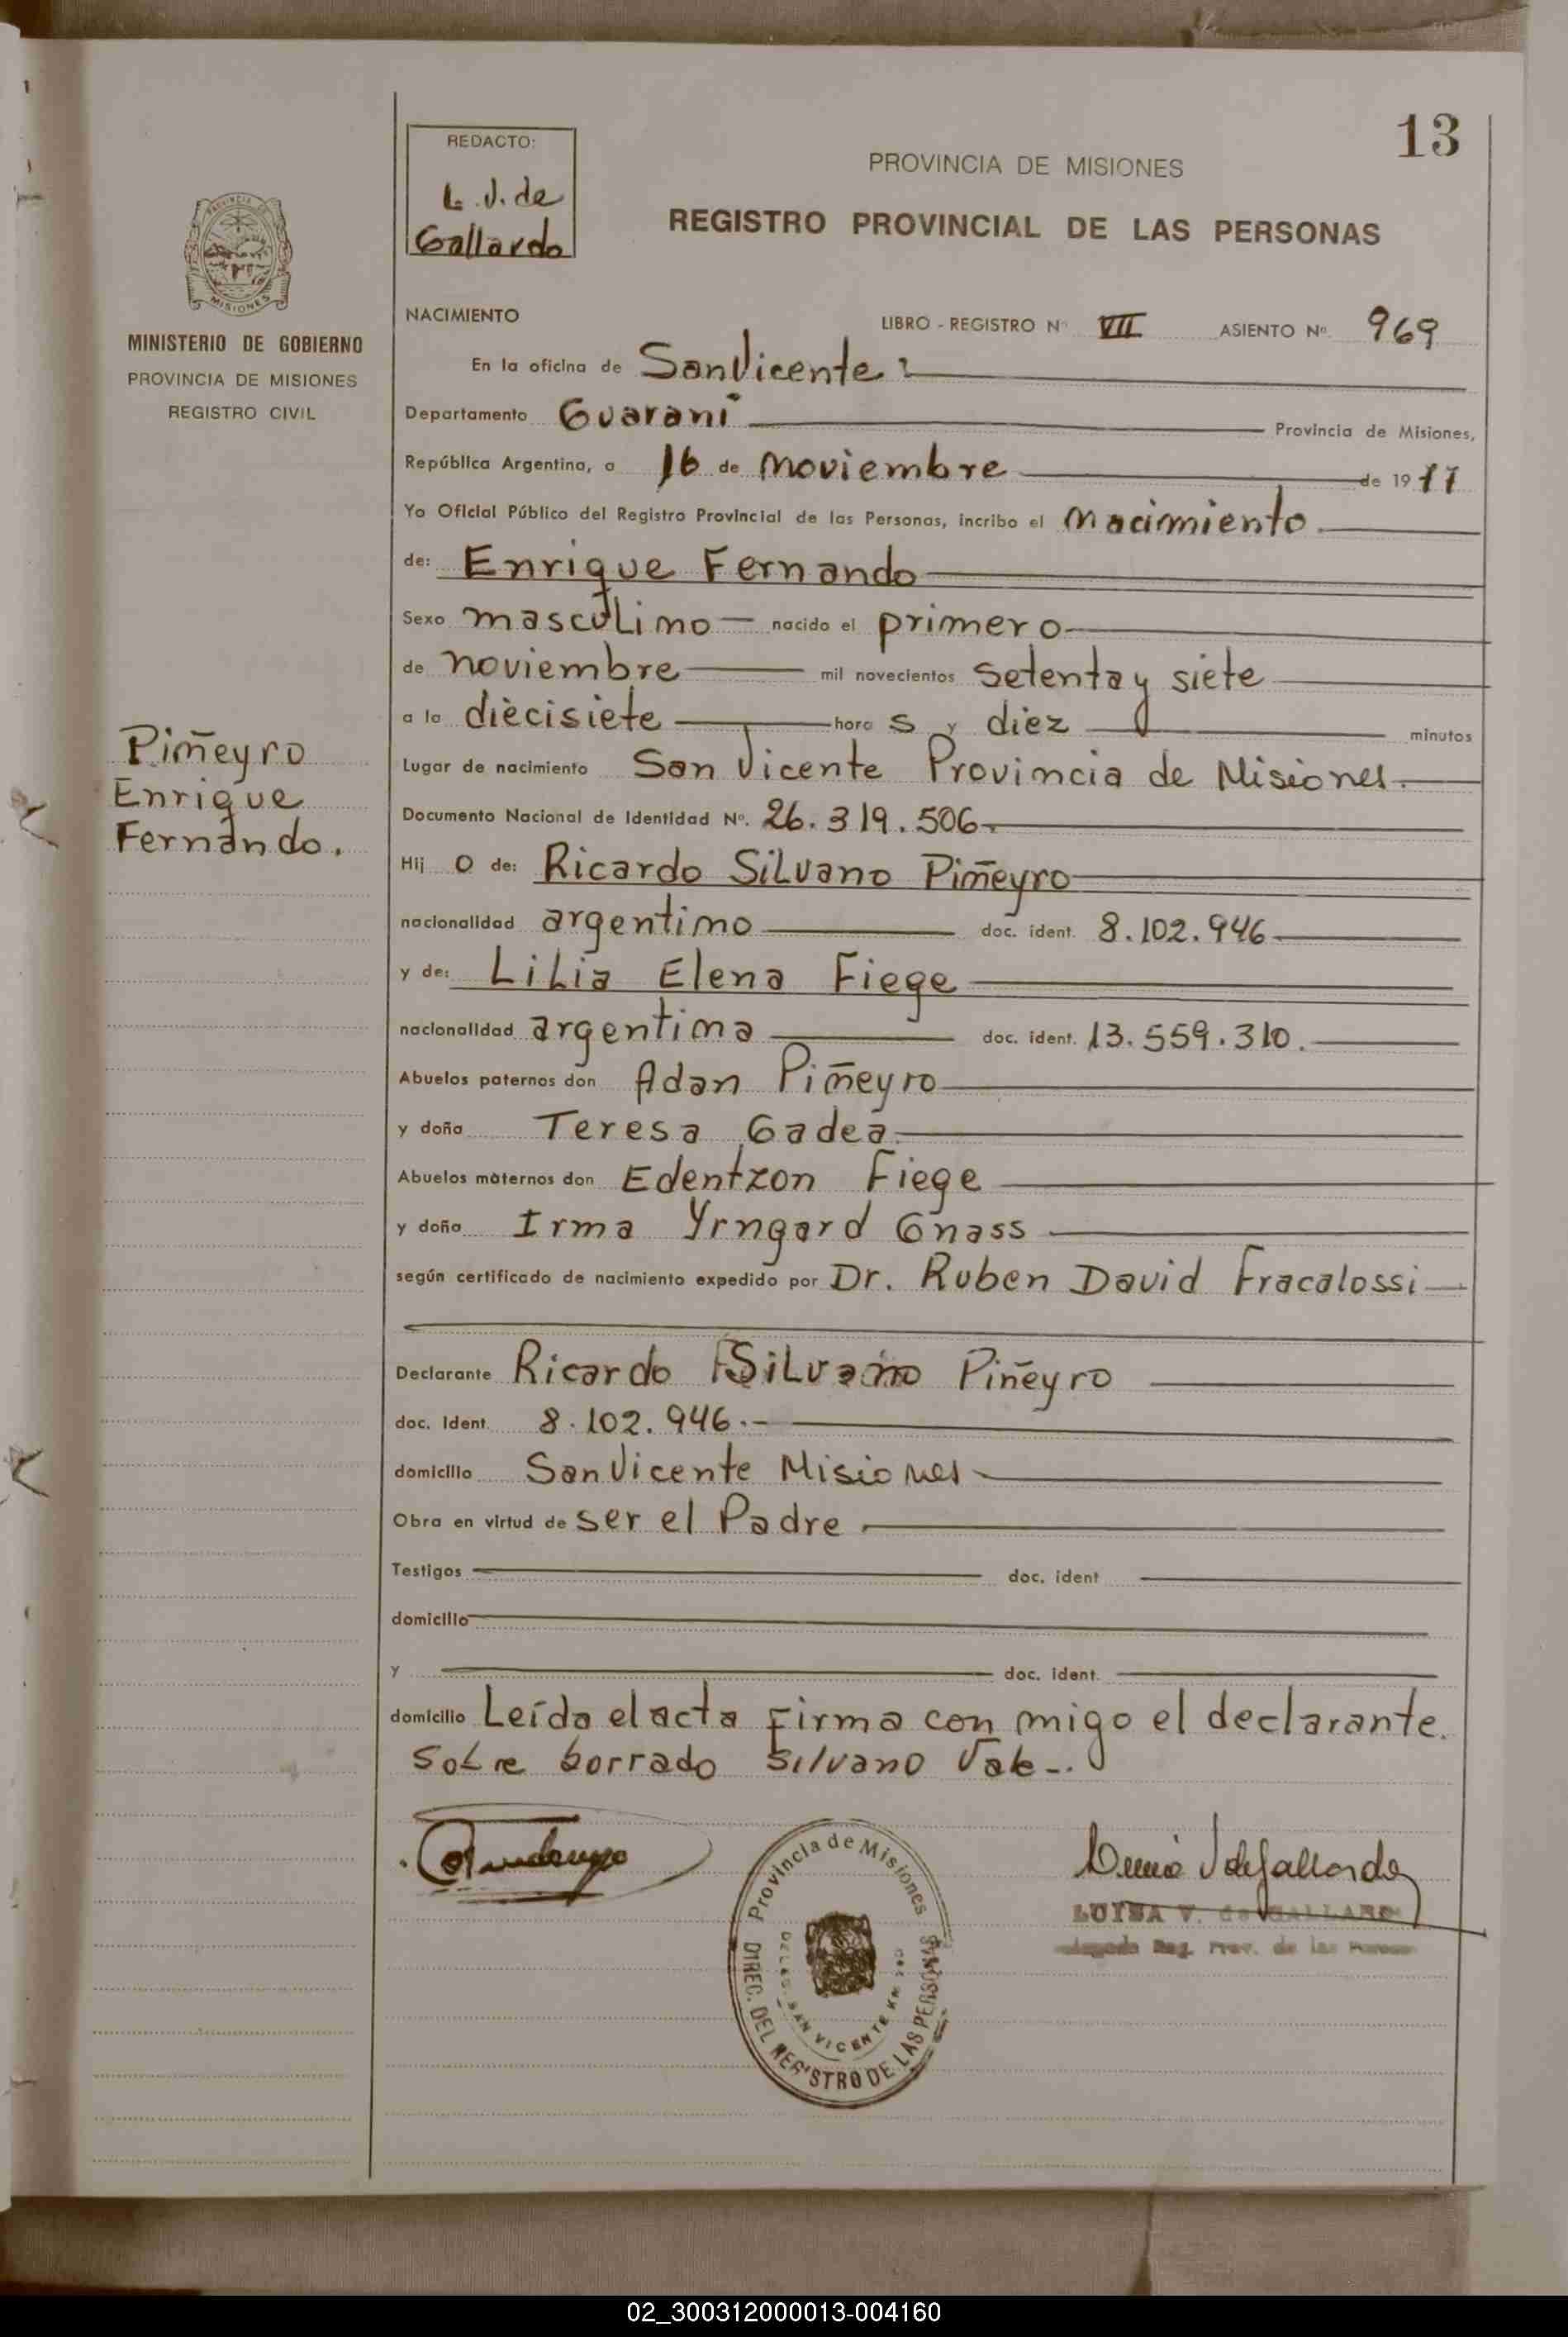 13
REDACTO:
L. V. de
Gallardo
PROVINCIA DE MISIONES
REGISTRO PROVINCIAL DE LAS PERSONAS
PROVINCIA DE
MISIONES
MINISTERIO DE GOBIERNO
PROVINCIA DE MISIONES
REGISTRO CIVIL
NACIMIENTO
LIBRO - REGISTRO Nº VII ASIENTO Nº 969
En la oficina de San Vicente
Departamento Guarani Provincia de Misiones,
República Argentina, a 16 de noviembre de 1977
Yo Oficial Público del Registro Provincial de las Personas, incribo el nacimiento
de: Enrique Fernando
Sexo masculino nacido el primero
de noviembre mil novecientos setenta y siete
a la diecisiete hora s y diez minutos
Piñeyro
Enrique
Fernando.
Lugar de nacimiento San Vicente Provincia de Misiones.
Documento Nacional de Identidad Nº. 26.319.506.
Hij o de: Ricardo Silvano Piñeyro
nacionalidad argentino doc. ident. 8.102.946
y de: Lilia Elena Fiege
nacionalidad argentina doc. ident. 13.559.310.
Abuelos paternos don Adan Piñeyro
y doña Teresa Gadea
Abuelos maternos don Edentzon Fiege
y doña Irma Yrngard Gnass
según certificado de nacimiento expedido por Dr. Ruben David Fracalossi
Declarante Ricardo Silvano Piñeyro
doc. Ident. 8.102.946.
domicilio San Vicente Misiones
Obra en virtud de ser el Padre
Testigos doc. ident
domicilio
y doc. ident.
domicilio Leída el acta firma con migo el declarante.
Sobre borrado Silvano Vale
Provincia de Misiones
DIREC. DEL REGISTRO DE LAS PERSONAS
SAN VICENTE
LUISA V. de GALLARDO
Reg. Prov. de las
02_300312000013-004160